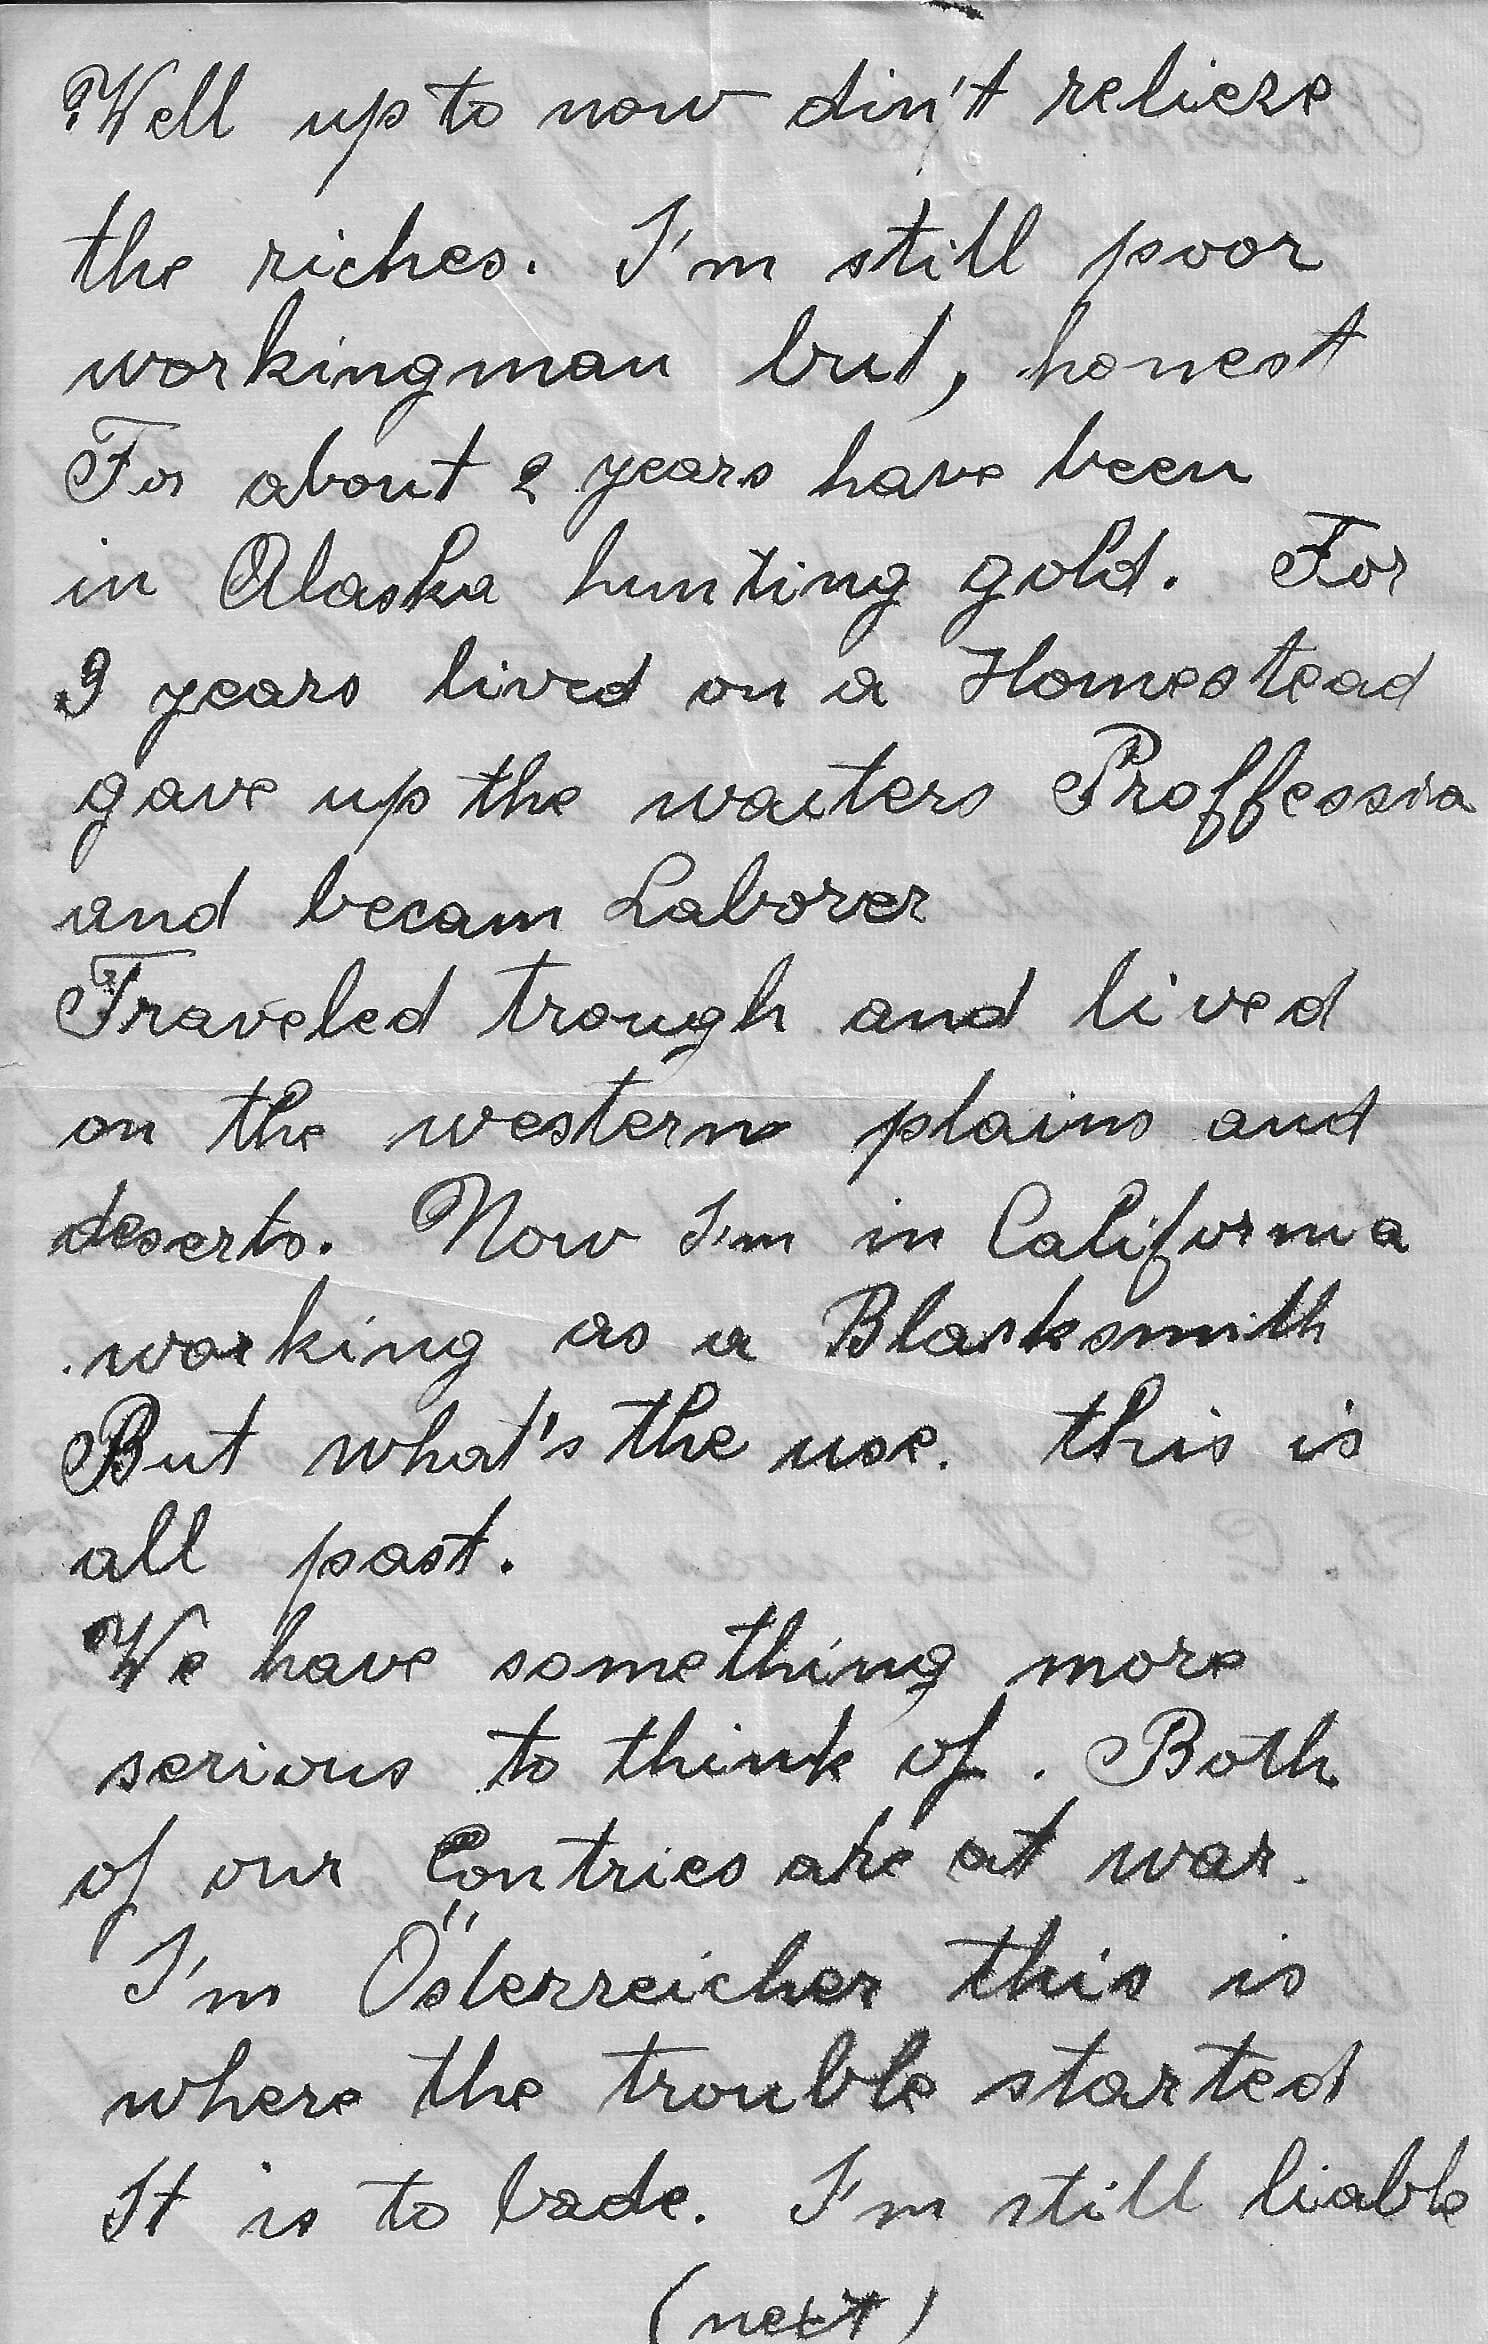 Well up to now din't relieze
the riches. I'm still poor
workingman but, honest
For about 2 years have been
in Alaska hunting gold. For
3 years lived on a Homestead
gave up the waiters Proffessio
and becam Laborer
Traveled trough and lived
on the western plains and
deserts. Now I'm in California
working as a Blacksmith
But what's the use. this is
all past.
We have something more
serious to think of. Both
of our Contries are at war.
I'm Österreicher this is
where the trouble started
It is to bade. I'm still liable
(next)